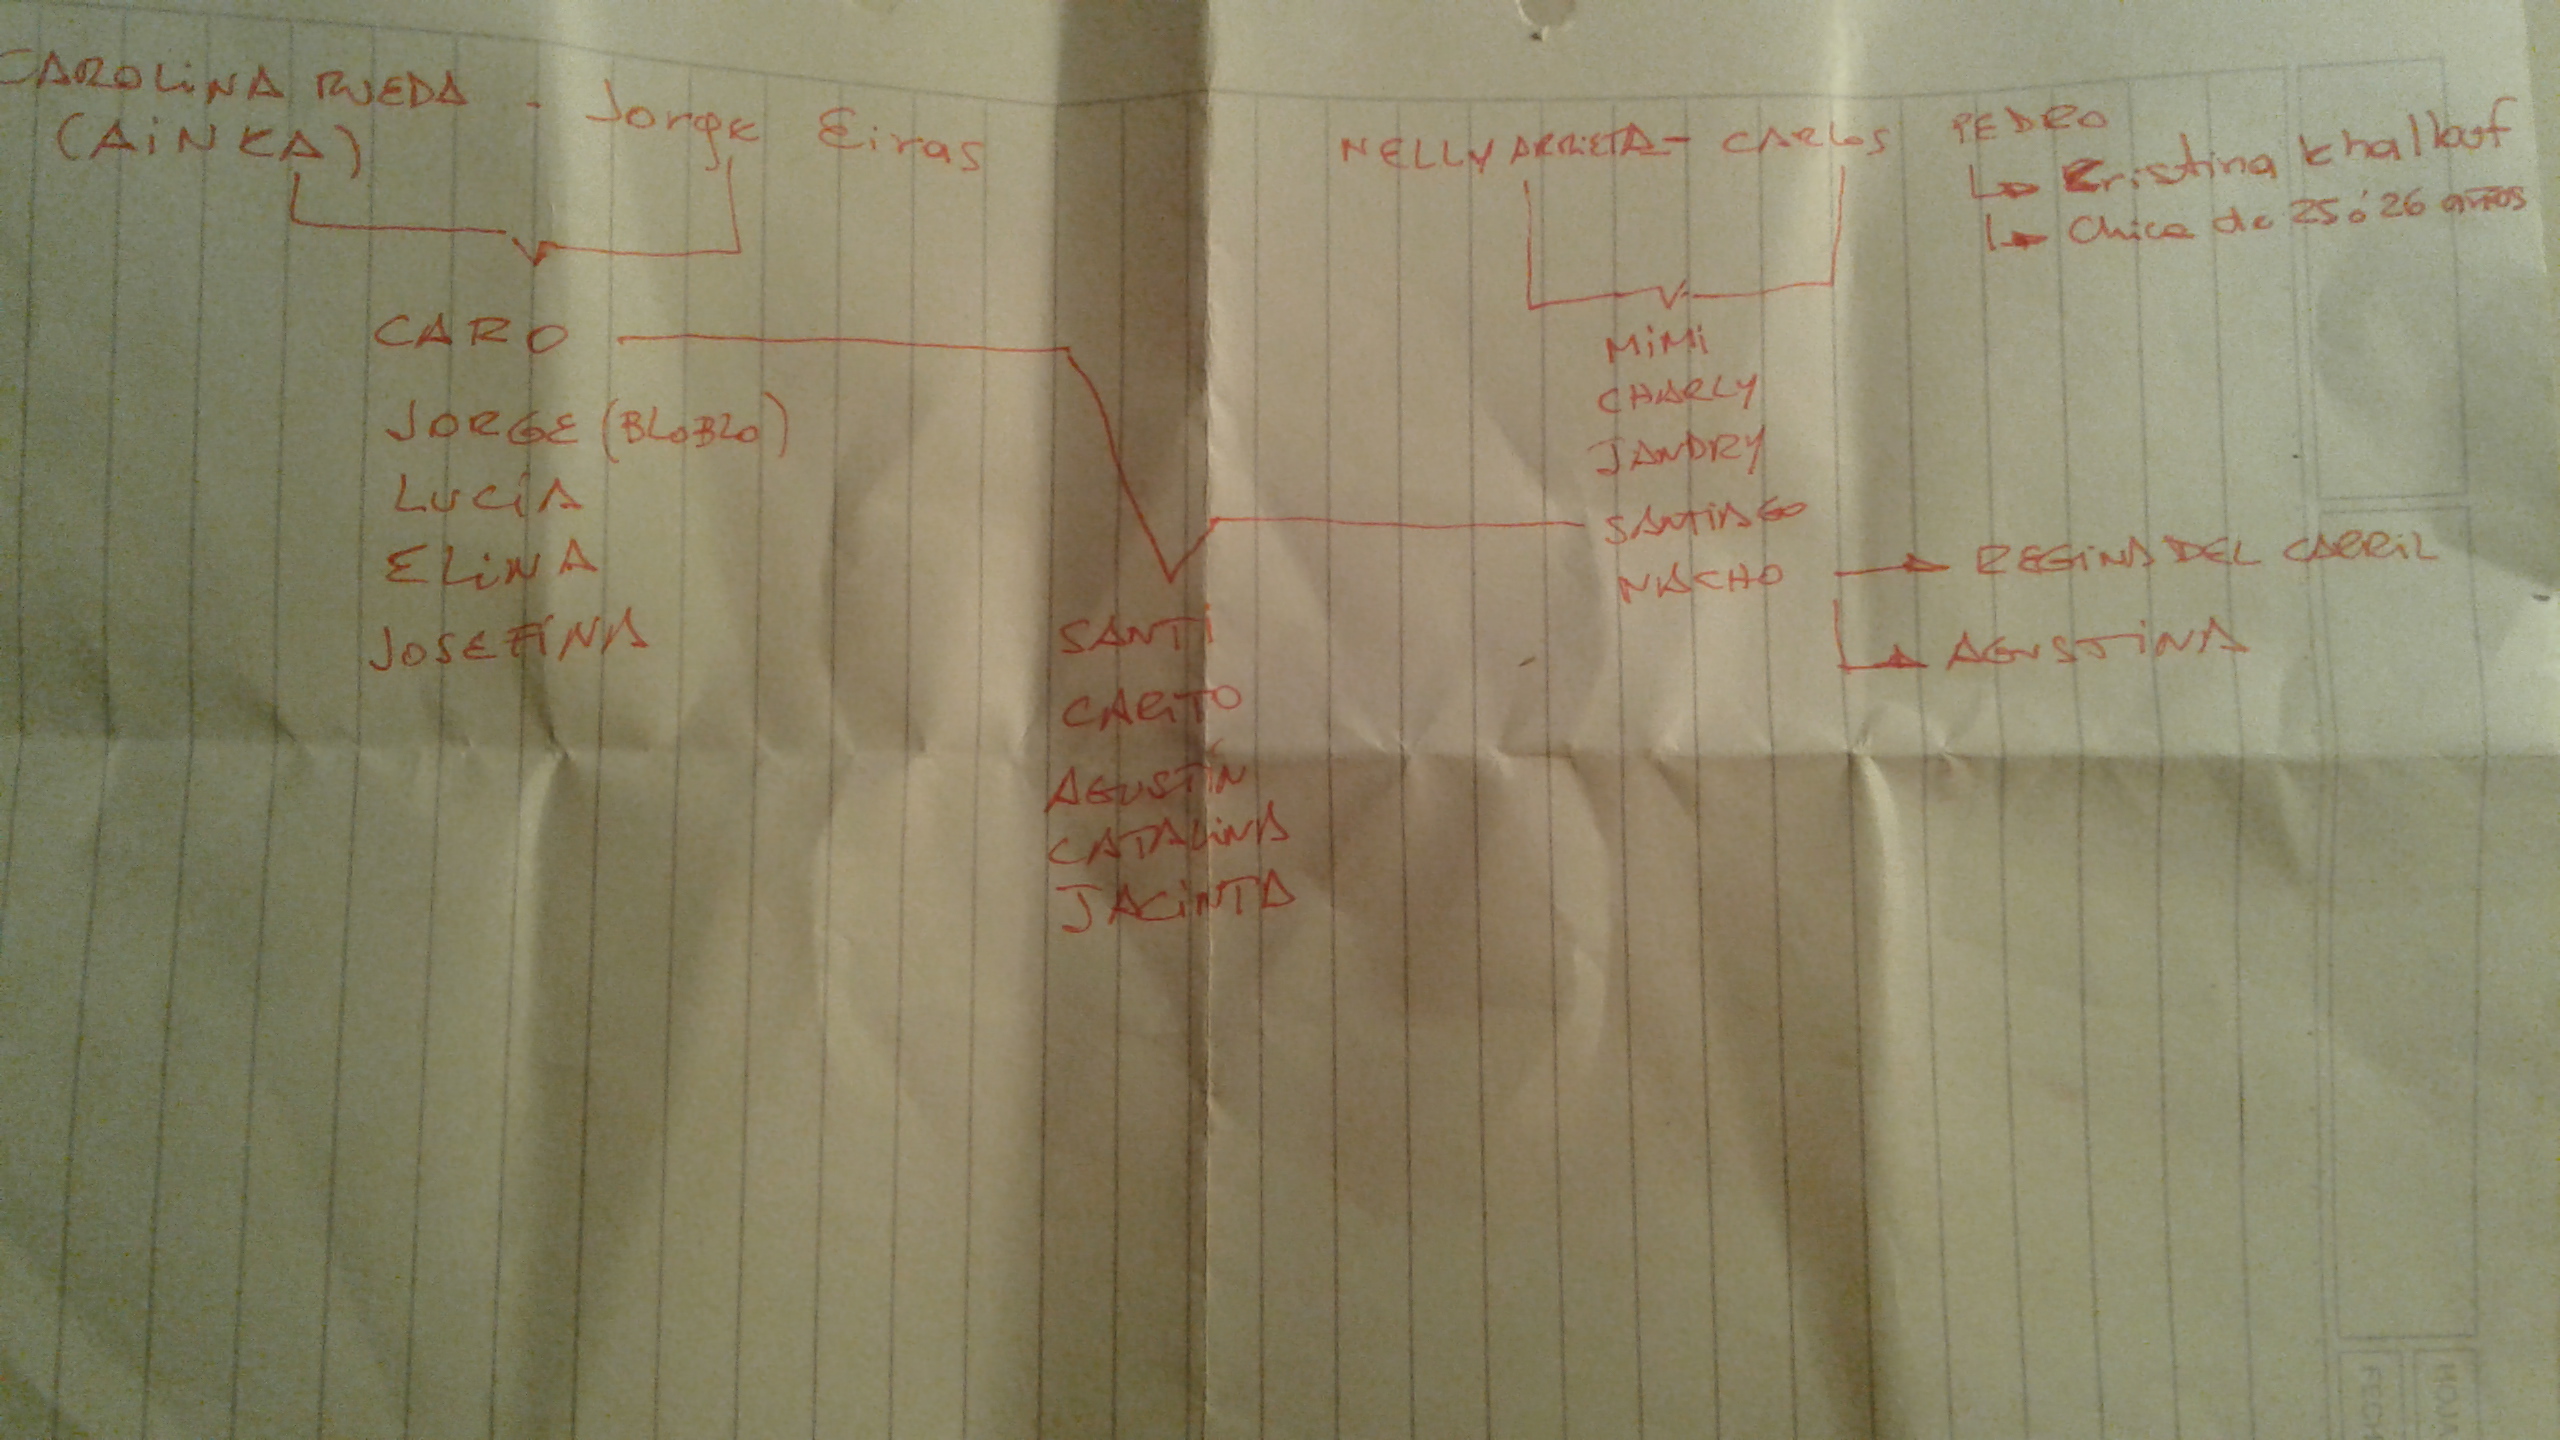 CAROLINA RUEDA - Jorge Eiras
(AINKA)
CARO
JORGE (BLOBLO)
LUCÍA
ELINA
JOSEFINA
SANTI
CARITO
AGUSTÍN
CATALINA
JACINTA
NELLY ARRIETA - CARLOS PEDRO
Cristina Khallouf
Chica de 25 ó 26 años
MIMI
CHARLY
JANDRY
SANTIAGO
NACHO
REGINA DEL CARRIL
AGUSTINA
HOJA
FECH